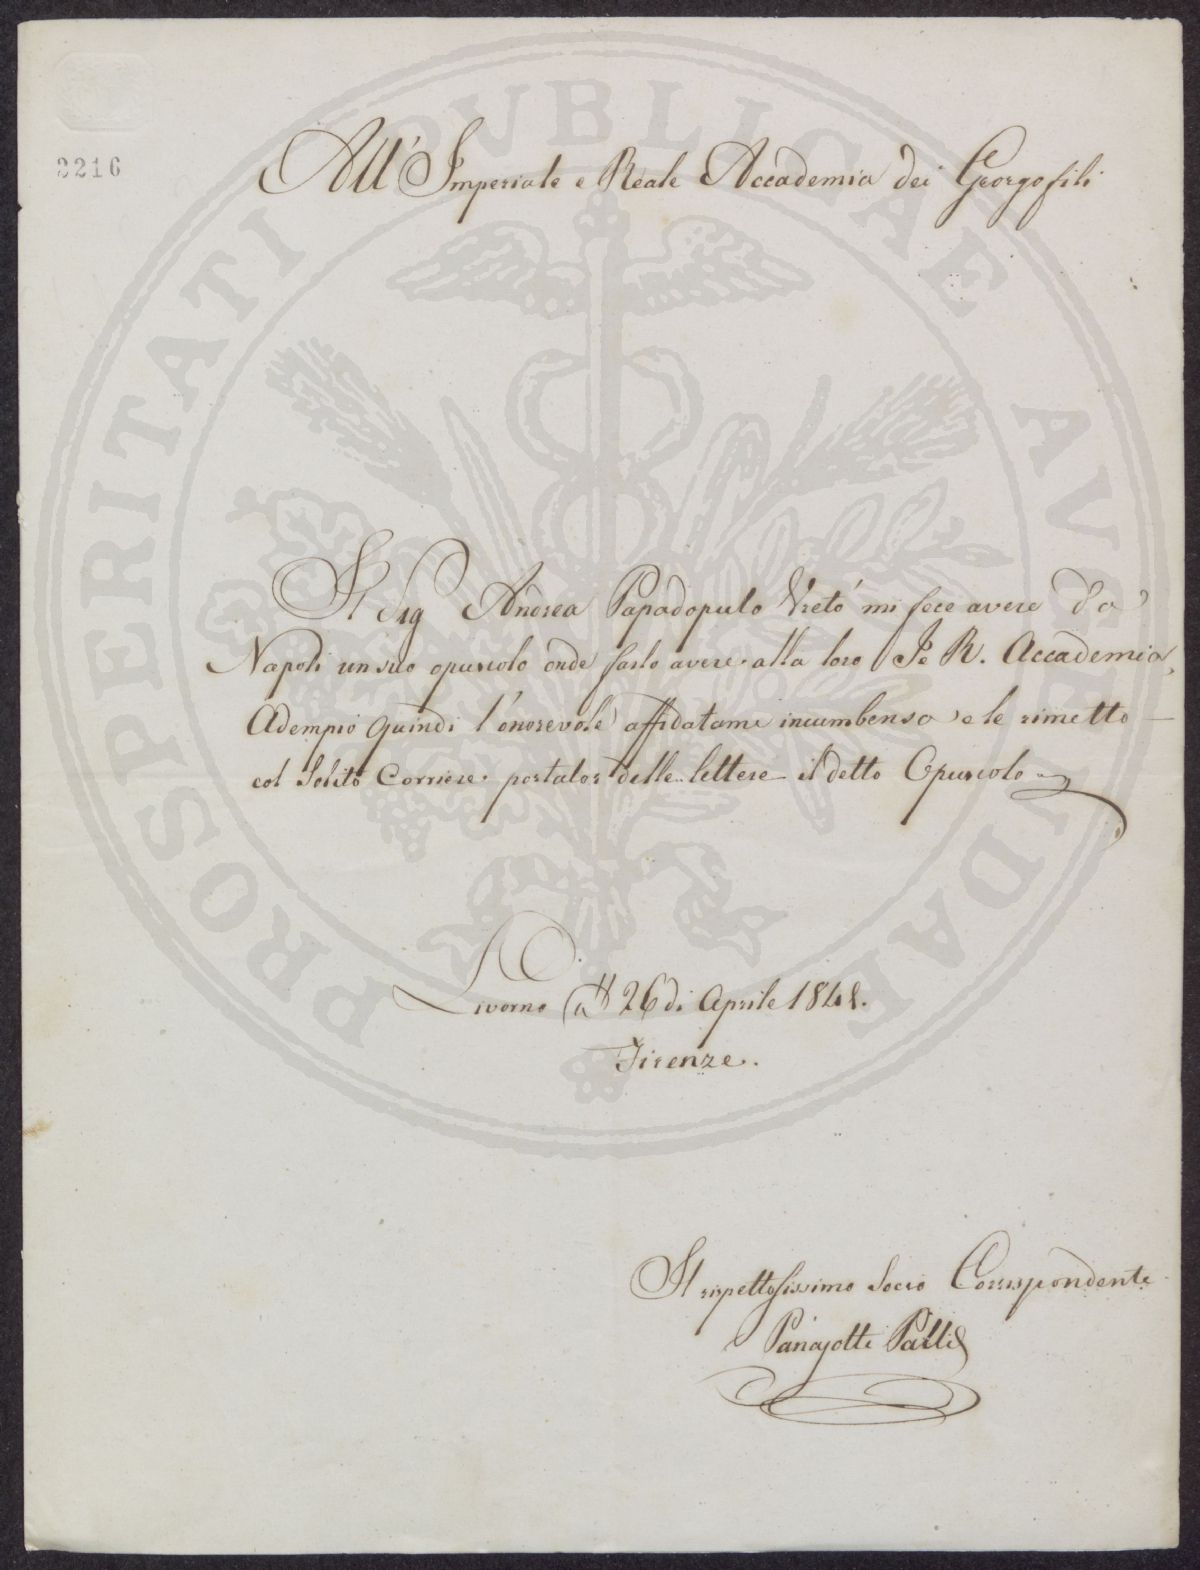 2216
All' Imperiale e Reale Accademia dei Georgofili
Il Sig Andrea Papadopulo Vretò mi fece avere da
Napoli un suo opuscolo onde farlo avere alla loro I e R. Accademia,
Adempio quindi l'onorevole affidatami incumbensa e le rimetto
col Solito Corriere portator delle lettere il detto Opuscolo
Livorno 26 di Aprile 1841.
Firenze.
Il rispettosissimo Socio Corrispondente
Panajotti Palli
PROSPERITATI PVBLICAE AVGENDAE